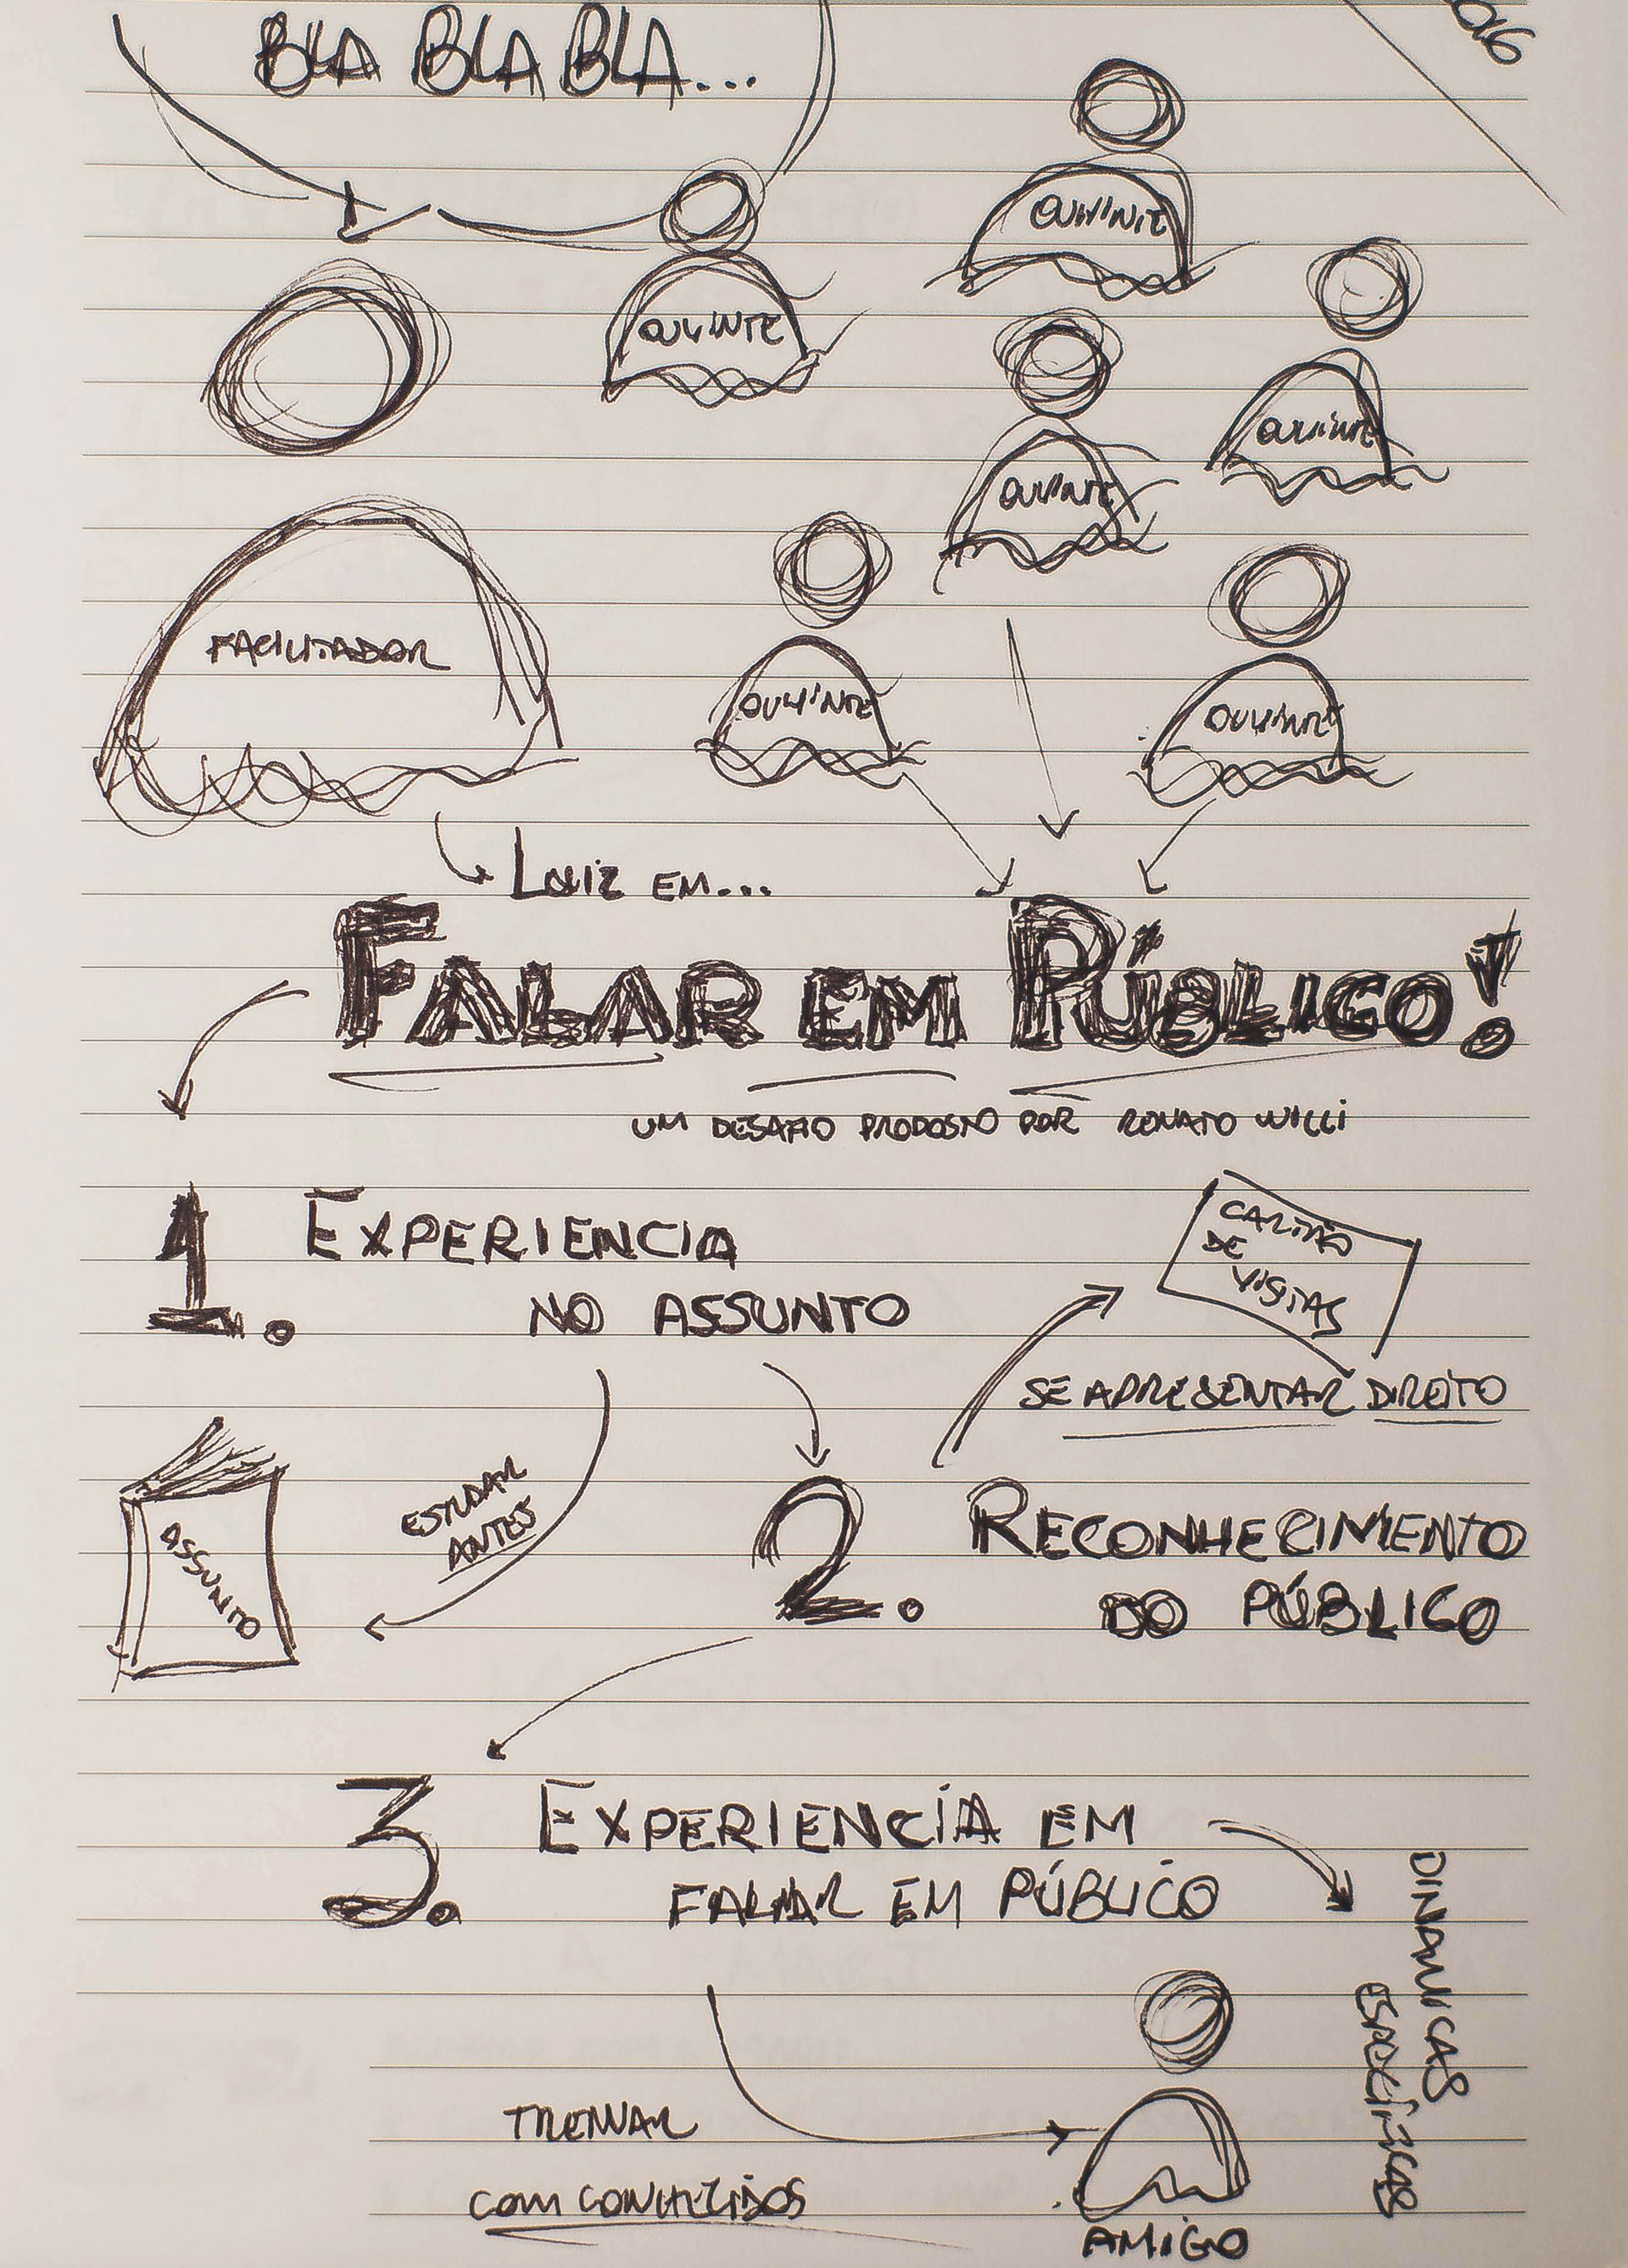 BLA BLA BLA...
OUVINTE
OUVINTE
OUVINTE
OUVINTE
OUVINTE
OUVINTE
FACILITADOR
LUIZ EM...
FALAR EM PÚBLICO!
UM DESAFIO PROPOSTO POR RENATO WILLI
1. EXPERIENCIA
NO ASSUNTO
CARTÃO
DE
VISITAS
SE APRESENTAR DIREITO
ESTUDAR
ANTES
ASSUNTO
2. RECONHECIMENTO
DO PÚBLICO
3. EXPERIENCIA EM
FALAR EM PÚBLICO
DINAMICAS
ESPECÍFICAS
TREINAR
COM CONHECIDOS
AMIGO